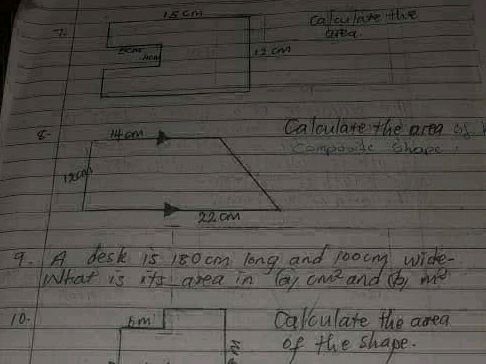 7.
15cm
Calculate the
area.
12cm
4cm
8.
14cm
Calculate the area of
Composite Shape.
12cm
22cm
9. A desk is 180cm long and 100cm wide.
What is its area in (a) cm² and (b) m²
10.
6m
Calculate the area
of the shape.
m